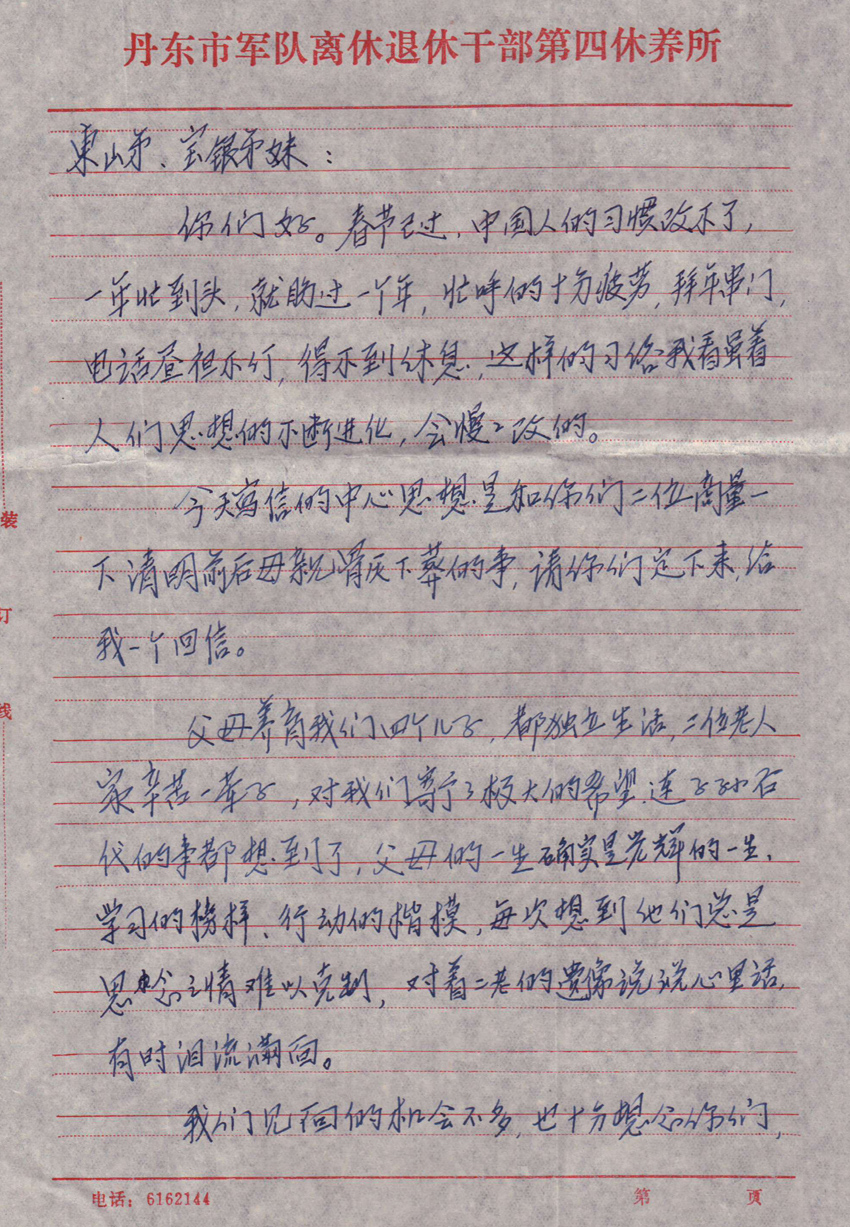 丹东市军队离休退休干部第四休养所
東山弟、宝银弟妹：
你们好。春节已过，中国人的习惯改不了，
一年忙到头，就盼过一个年，忙呼的十分疲劳，拜年串门，
电话昼夜不停，得不到休息，这样的习俗我看跟着
人们思想的不断进化，会慢々改的。
今天写信的中心思想是和你们二位商量一
下清明前后母亲骨灰下葬的事，请你们定下来，给
我一个回信。
父母养育我们四个儿子，都独立生活，二位老人
家辛苦一辈子，对我们寄于了极大的希望，连子子孙后
代的事都想到了，父母的一生确实是光辉的一生、
学习的榜样、行动的楷模，每次想到他们总是
思念之情难以克制，对着二老的遗像说说心里话，
有时泪流满面。
我们见面的机会不多，也十分想念你们，
电话：6162144
第 页
装
订
线